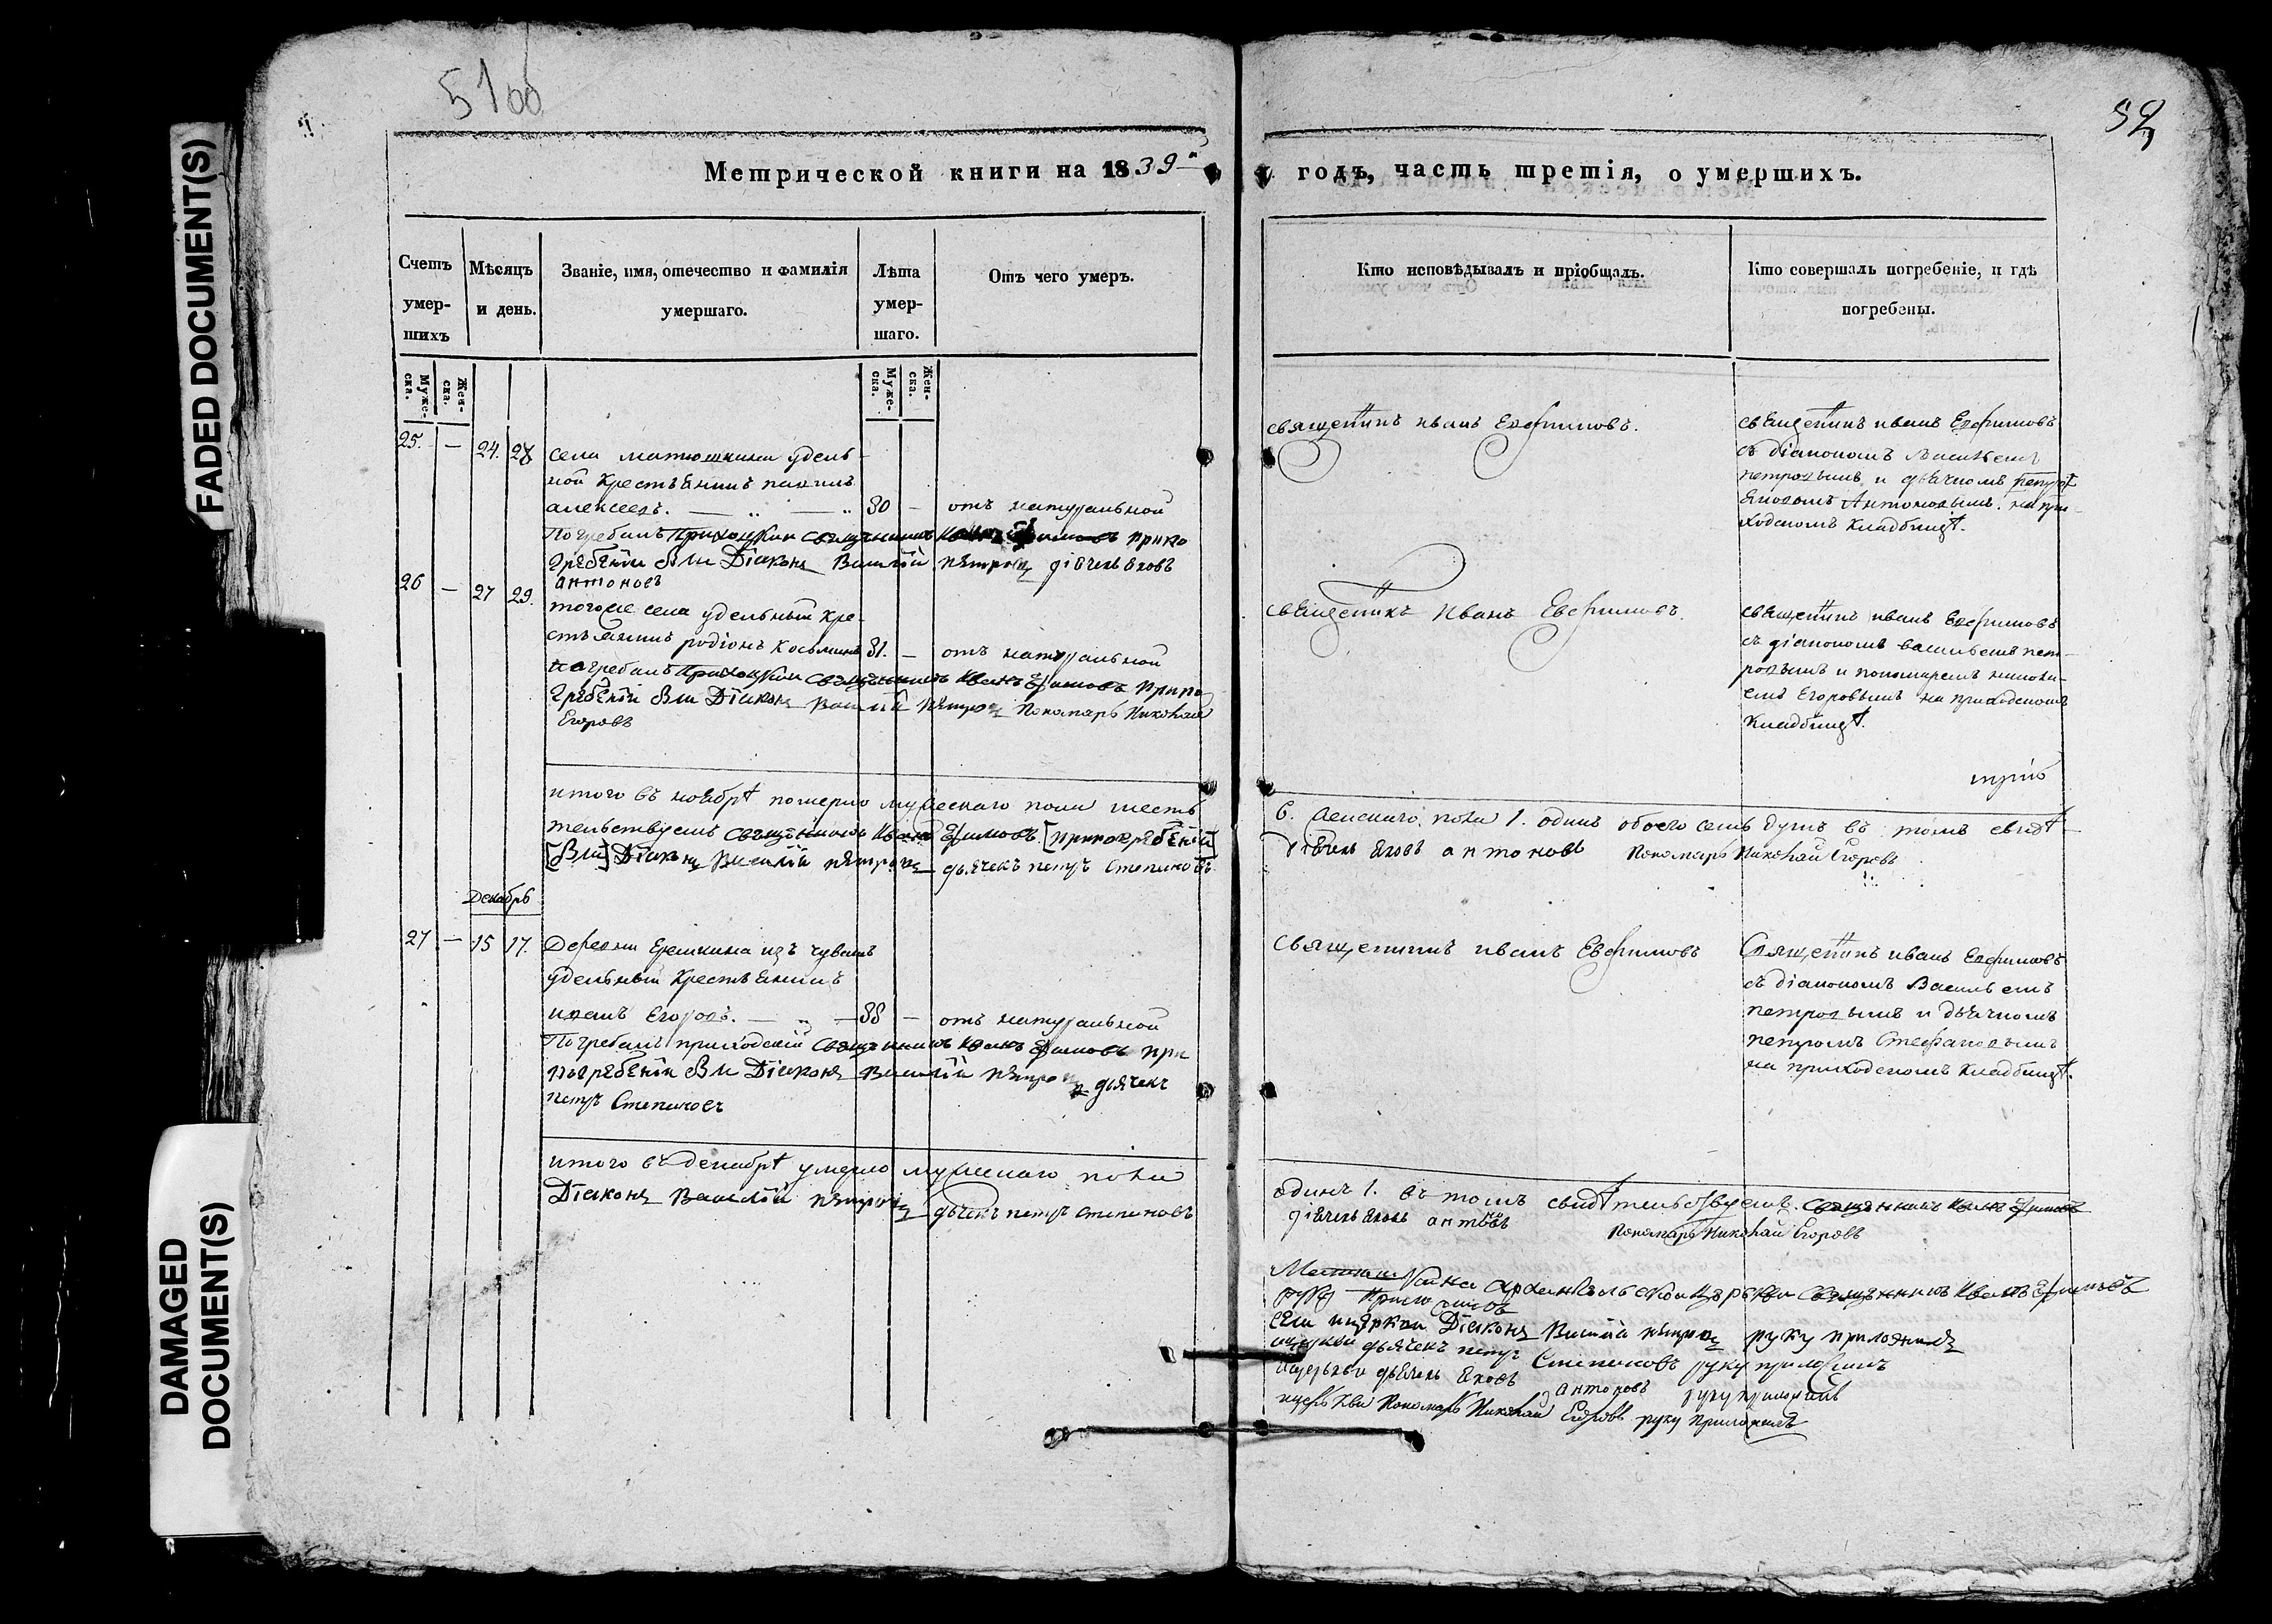 FADED DOCUMENT(S)
DAMAGED
DOCUMENT(S)
51об
52
Метрической книги на 1839
годъ, часть третія, о умершихъ.
Счетъ умер-шихъ
Мѣсяцъ и день.
Званіе, имя, отечество и фамилія умершаго.
Лѣта умер-шаго.
Отъ чего умеръ.
Кто исповѣдывалъ и пріобщалъ.
Кто совершалъ погребеніе, и гдѣ погребены.
Муже-ска.
Жен-ска.
Муже-ска.
Жен-ска.
25. — 24. 28
села матюшкина удель-
ной крестьянинъ
алексеевъ. — 80 — отъ натуральной
Погребалъ священникъ при по
гребеніи были Діаконъ Василій петровъ дьячекъ яковъ
антоновъ
священникъ иванъ Евфимовъ.
священникъ иванъ Евфимовъ
съ діакономъ васильемъ
петровымъ и дьячкомъ
яковомъ Антоновымъ. на при-
ходскомъ кладбищѣ.
26 — 27 29.
тогоже села удельный кре-
стьянинъ родіонъ косьминъ 81. — отъ натуральной
погребалъ священникъ Иванъ Ефимовъ при по
гребеніи были Діаконъ Василій петровъ Пономарь Николай
Егоровъ
священникъ Иванъ Евфимовъ.
священникъ иванъ Евфимовъ
съ діакономъ васильемъ пет-
ровымъ и пономаремъ никола-
емъ Егоровымъ на приходскомъ
кладбищѣ.
итого въ ноябрѣ померло мужескаго пола шесть
6. женскаго пола 1. одинъ обоего семь душъ въ томъ свидѣ-
тельствуемъ священникъ Иванъ Ефимовъ [при погребеніи
были] Діаконъ Василій петровъ дьячекъ петръ Степановъ
дьячекъ яковъ антоновъ Пономарь Николай Егоровъ
декабрь
27 — 15 17.
Деревни Ерешкина изъ чувашъ
удельный крестьянинъ
иванъ Егоровъ. — 88 — отъ натуральной
Погребалъ приходскій священникъ Иванъ Ефимовъ при
погребеніи были Діаконъ Василій петровъ дьячекъ
петръ Степановъ
священникъ иванъ Евфимовъ
Священникъ иванъ Евфимовъ
съ діакономъ Васильемъ
петровымъ и дьячкомъ
петромъ Стефановымъ
на приходскомъ кладбищѣ.
итого въ декабрѣ умерло мужескаго пола
одинъ 1. въ томъ свидѣтельствуемъ. священникъ Иванъ Ефимовъ
Діаконъ Василій петровъ дьячекъ петръ степановъ
дьячекъ яковъ антоновъ
Пономарь Николай Егоровъ
архангельской церкви священникъ Иванъ Ефимовъ
руку приложилъ
церкви Діаконъ Василій петровъ руку приложилъ
дьячекъ петръ Степановъ руку приложилъ
дьячекъ яковъ антоновъ руку приложилъ
церкви Пономарь Николай Егоровъ руку приложилъ